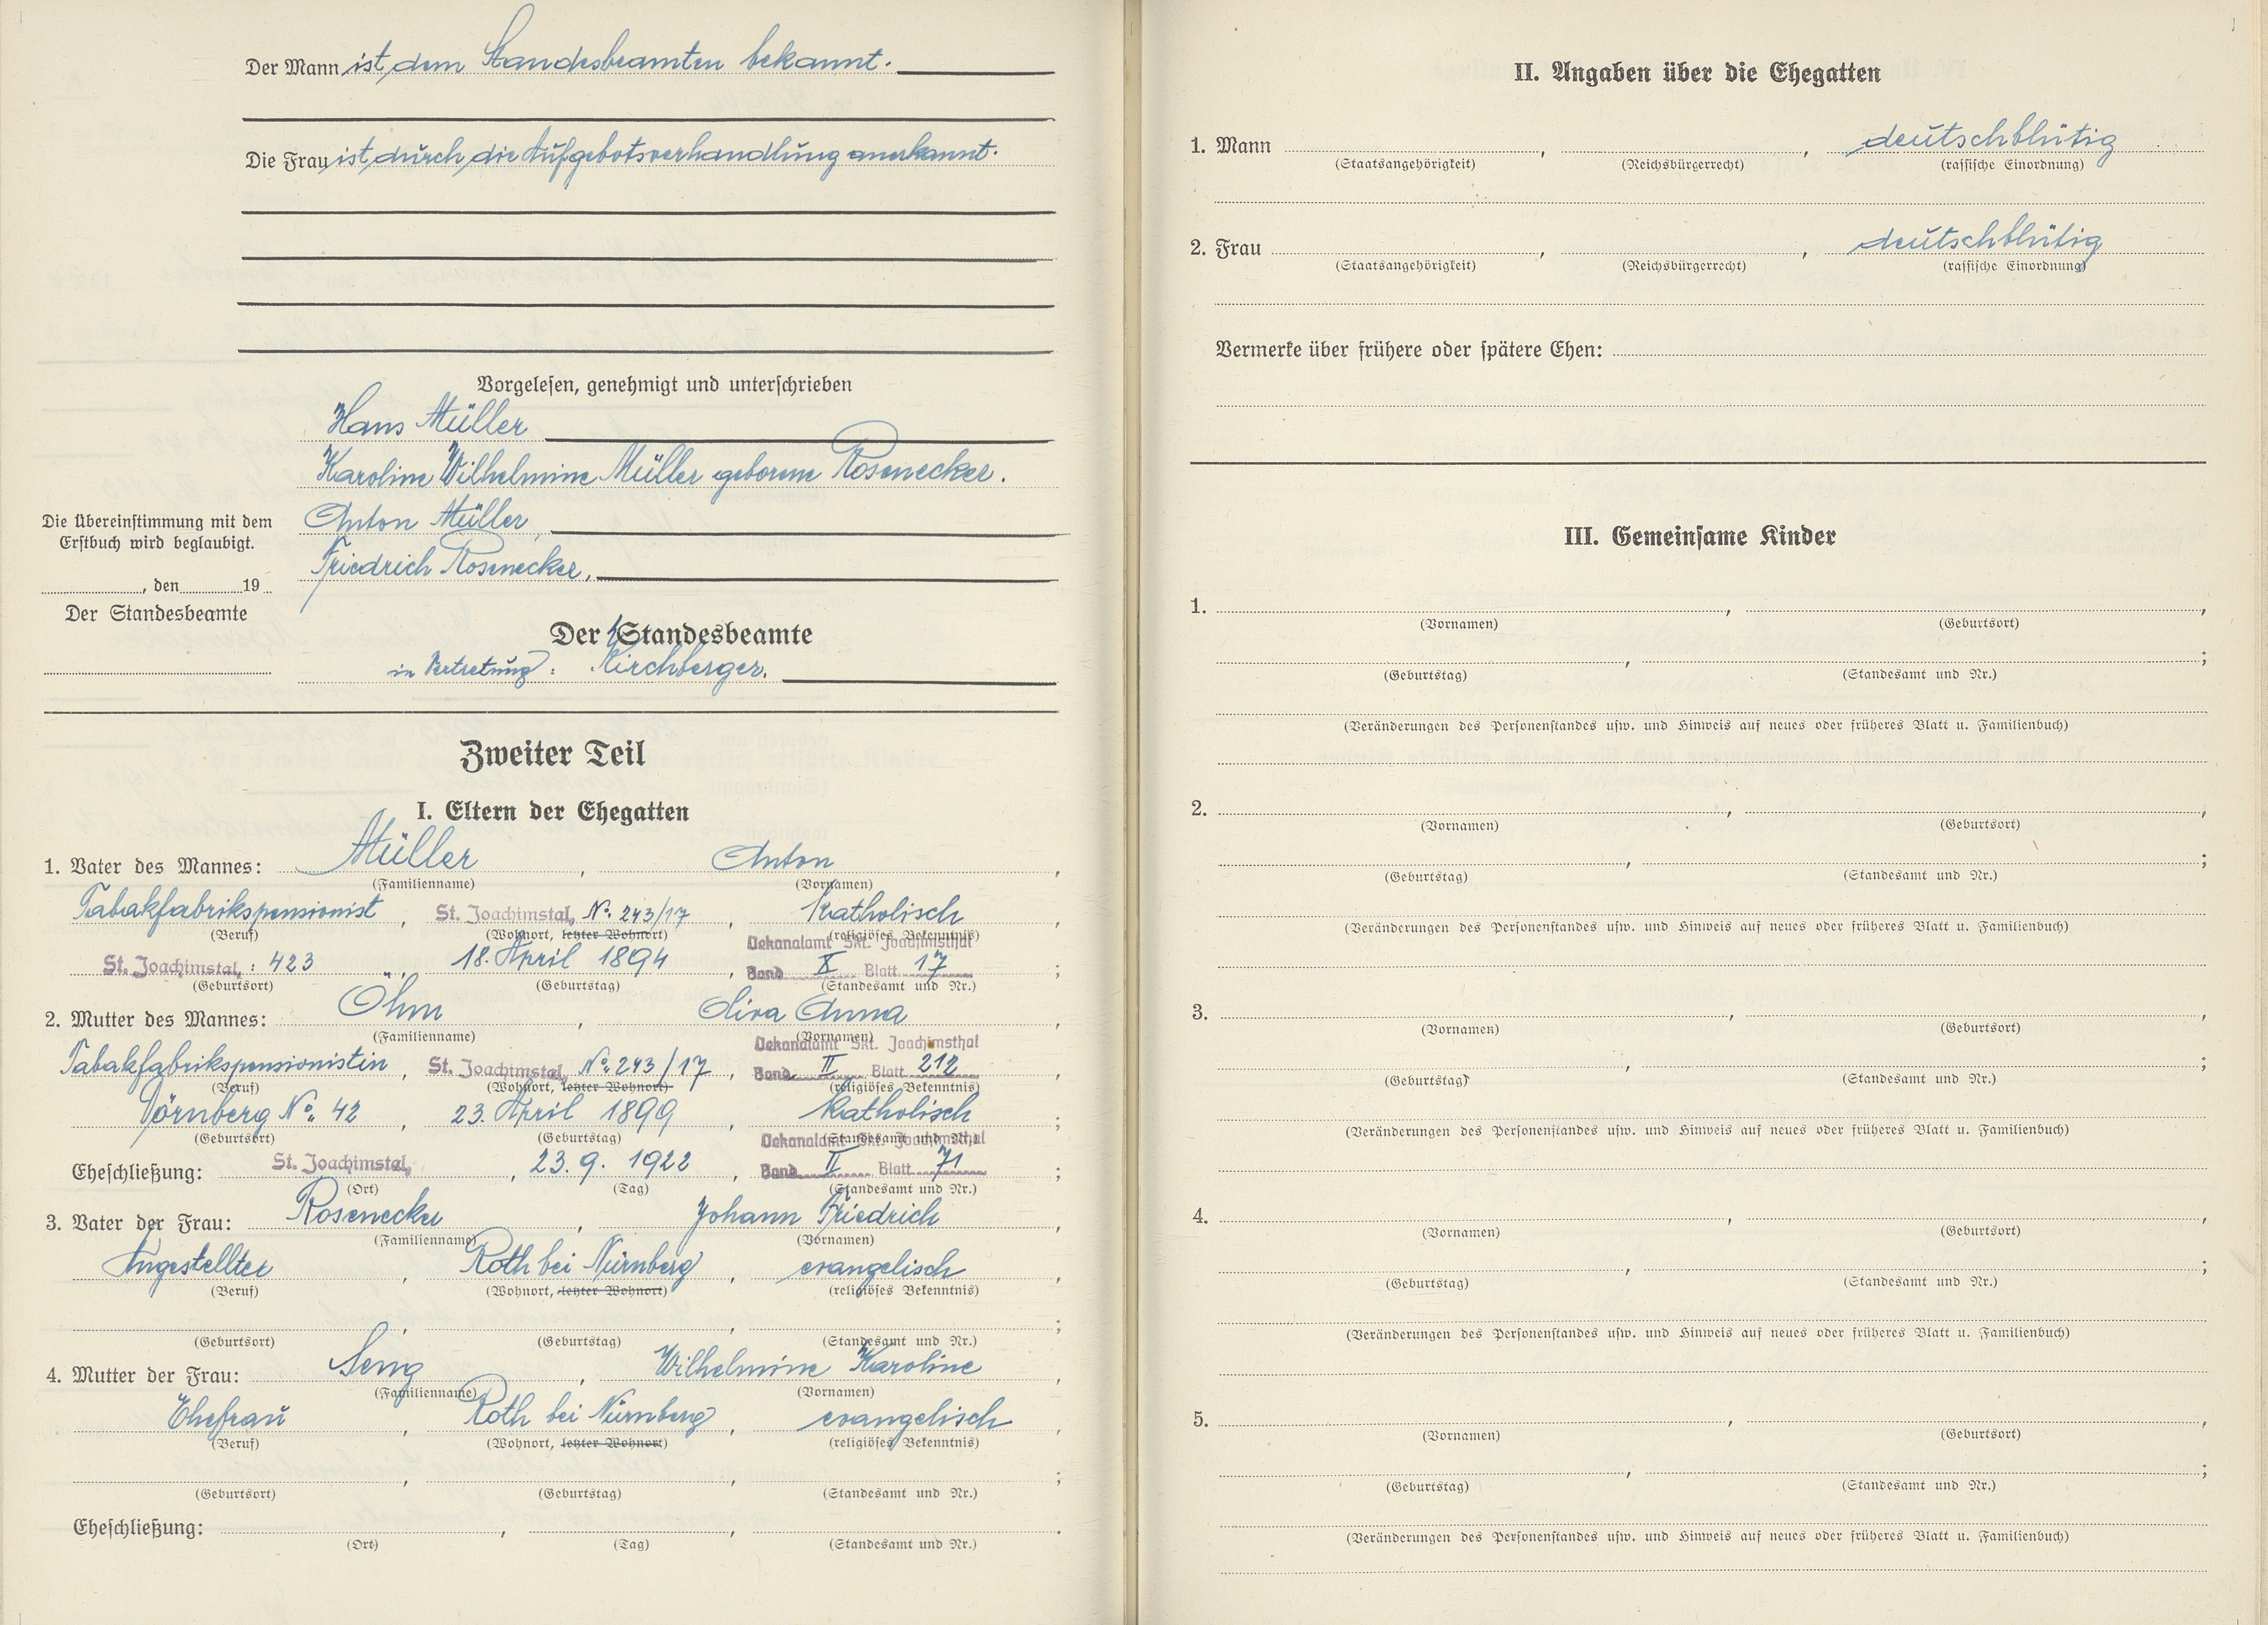 Der Mann ist dem Standesbeamten bekannt.
Die Frau ist durch die Aufgebotsverhandlung anerkannt.
Vorgelesen, genehmigt und unterschrieben
Hans Müller
Karoline Wilhelmine Müller geborene Rosenecker.
Anton Müller
Friedrich Rosenecker.
Die Übereinstimmung mit dem
Erstbuch wird beglaubigt.
, den 19
Der Standesbeamte
Der Standesbeamte
in Vertretung: Kirchberger.
Zweiter Teil
I. Eltern der Ehegatten
1. Vater des Mannes: Müller, Anton,
(Familienname) (Vornamen)
Tabakfabrikspensionist, St. Joachimstal, No. 243/17, Katholisch,
(Beruf) (Wohnort, letzter Wohnort) (religiöses Bekenntnis)
Dekanalamt Skt. Joachimsthal
St. Joachimstal, : 423, 18. April 1894, Band X Blatt 17;
(Geburtsort) (Geburtstag) (Standesamt und Nr.)
2. Mutter des Mannes: Ohm, Anna,
(Familienname) (Vornamen)
Dekanalamt Skt. Joachimsthal
Tabakfabrikspensionistin, St. Joachimstal, No. 243/17, Band II Blatt 212,
(Beruf) (Wohnort, letzter Wohnort) (religiöses Bekenntnis)
No. 42, 23. April 1899, Katholisch;
(Geburtsort) (Geburtstag) (Standesamt und Nr.)
Dekanalamt Skt. Joachimsthal
Eheschließung: St. Joachimstal, , 23. 9. 1922, Band II Blatt 71;
(Ort) (Tag) (Standesamt und Nr.)
3. Vater der Frau: Rosenecker, Johann Friedrich,
(Familienname) (Vornamen)
Angestellter, Roth bei Nürnberg, evangelisch,
(Beruf) (Wohnort, letzter Wohnort) (religiöses Bekenntnis)
(Geburtsort) (Geburtstag) (Standesamt und Nr.)
4. Mutter der Frau: Seng, Wilhelmine Karoline,
(Familienname) (Vornamen)
Ehefrau, Roth bei Nürnberg, evangelisch,
(Beruf) (Wohnort, letzter Wohnort) (religiöses Bekenntnis)
(Geburtsort) (Geburtstag) (Standesamt und Nr.)
Eheschließung: , , .
(Ort) (Tag) (Standesamt und Nr.)
II. Angaben über die Ehegatten
1. Mann , , deutschblütig
(Staatsangehörigkeit) (Reichsbürgerrecht) (rassische Einordnung)
2. Frau , , deutschblütig
(Staatsangehörigkeit) (Reichsbürgerrecht) (rassische Einordnung)
Vermerke über frühere oder spätere Ehen:
III. Gemeinsame Kinder
1. , ,
(Vornamen) (Geburtsort)
(Geburtstag) (Standesamt und Nr.)
(Veränderungen des Personenstandes usw. und Hinweis auf neues oder früheres Blatt u. Familienbuch)
2. , ,
(Vornamen) (Geburtsort)
(Geburtstag) (Standesamt und Nr.)
(Veränderungen des Personenstandes usw. und Hinweis auf neues oder früheres Blatt u. Familienbuch)
3. , ,
(Vornamen) (Geburtsort)
(Geburtstag) (Standesamt und Nr.)
(Veränderungen des Personenstandes usw. und Hinweis auf neues oder früheres Blatt u. Familienbuch)
4. , ,
(Vornamen) (Geburtsort)
(Geburtstag) (Standesamt und Nr.)
(Veränderungen des Personenstandes usw. und Hinweis auf neues oder früheres Blatt u. Familienbuch)
5. , ,
(Vornamen) (Geburtsort)
(Geburtstag) (Standesamt und Nr.)
(Veränderungen des Personenstandes usw. und Hinweis auf neues oder früheres Blatt u. Familienbuch)